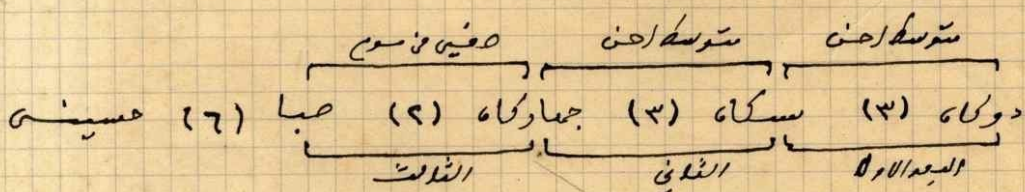 متوسط احن متوسط احن صفي من سوم
دوكاه (٣) سكاه (٣) جهاركاه (٢) صبا (٦) حسيني
البعد الاول الثاني الثالث